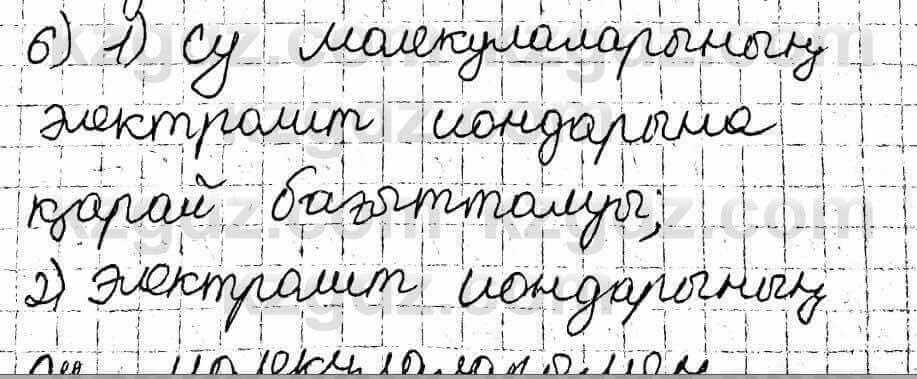 б) 1) Су молекулаларының
электролит иондарына
қарай бағытталуы;
2) Электролит иондарының